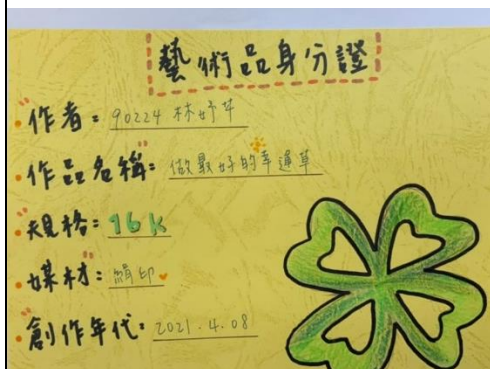 藝術品身分證
作者: 90224 林妤芊
作品名稱: 做最好的幸運草
規格: 16k
媒材: 絹印
創作年代: 2021.4.08